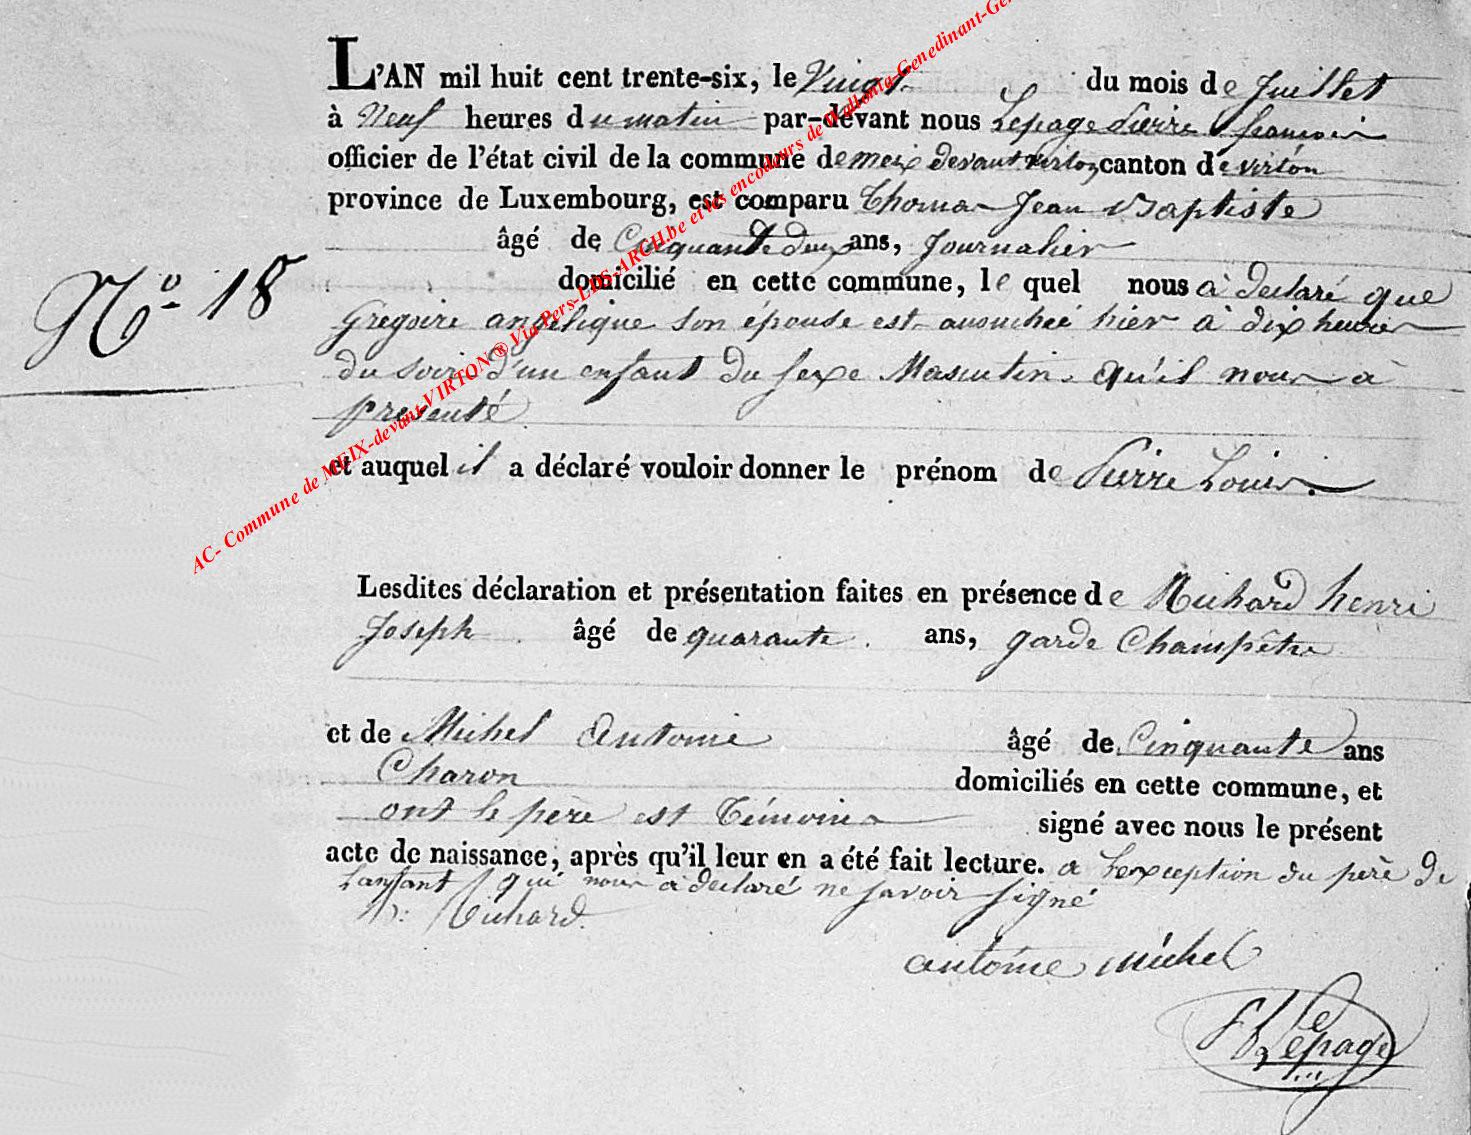 L'AN mil huit cent trente-six, le Vingt du mois de Juillet
à Neuf heures du matin par-devant nous Lepage Pierre françois
officier de l'état civil de la commune de meix devant virton canton de virton
province de Luxembourg, est comparu Thomas Jean Baptiste
âgé de Cinquante deux ans, Journalier
domicilié en cette commune, le quel nous à declaré que
N.o 18
Gregoire angelique son épouse est accouchée hier à dix heures
du soir d'un enfant du sexe Masculin qu'il nous à
presenté
et auquel il a déclaré vouloir donner le prénom de Pierre Louis.
Lesdites déclaration et présentation faites en présence de Richard henri
Joseph âgé de quarante ans, garde Champêtre
et de Michel Antoine âgé de Cinquante ans
Charon domiciliés en cette commune, et
ont le père est Témoins signé avec nous le présent
acte de naissance, après qu'il leur en a été fait lecture. a L'exception du père de
L'anfant qui nous à declaré ne savoir signé
h: Richard
antoine michel
Lepage
AC- Commune de MEIX-devant-VIRTON ® Via Pers-LDS-ARCH.be et les encodeurs de Wallonia-Genedinant-Ge